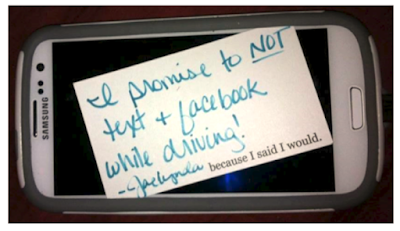 SAMSUNG
I promise to NOT
text + facebook
while driving!
because I said I would.